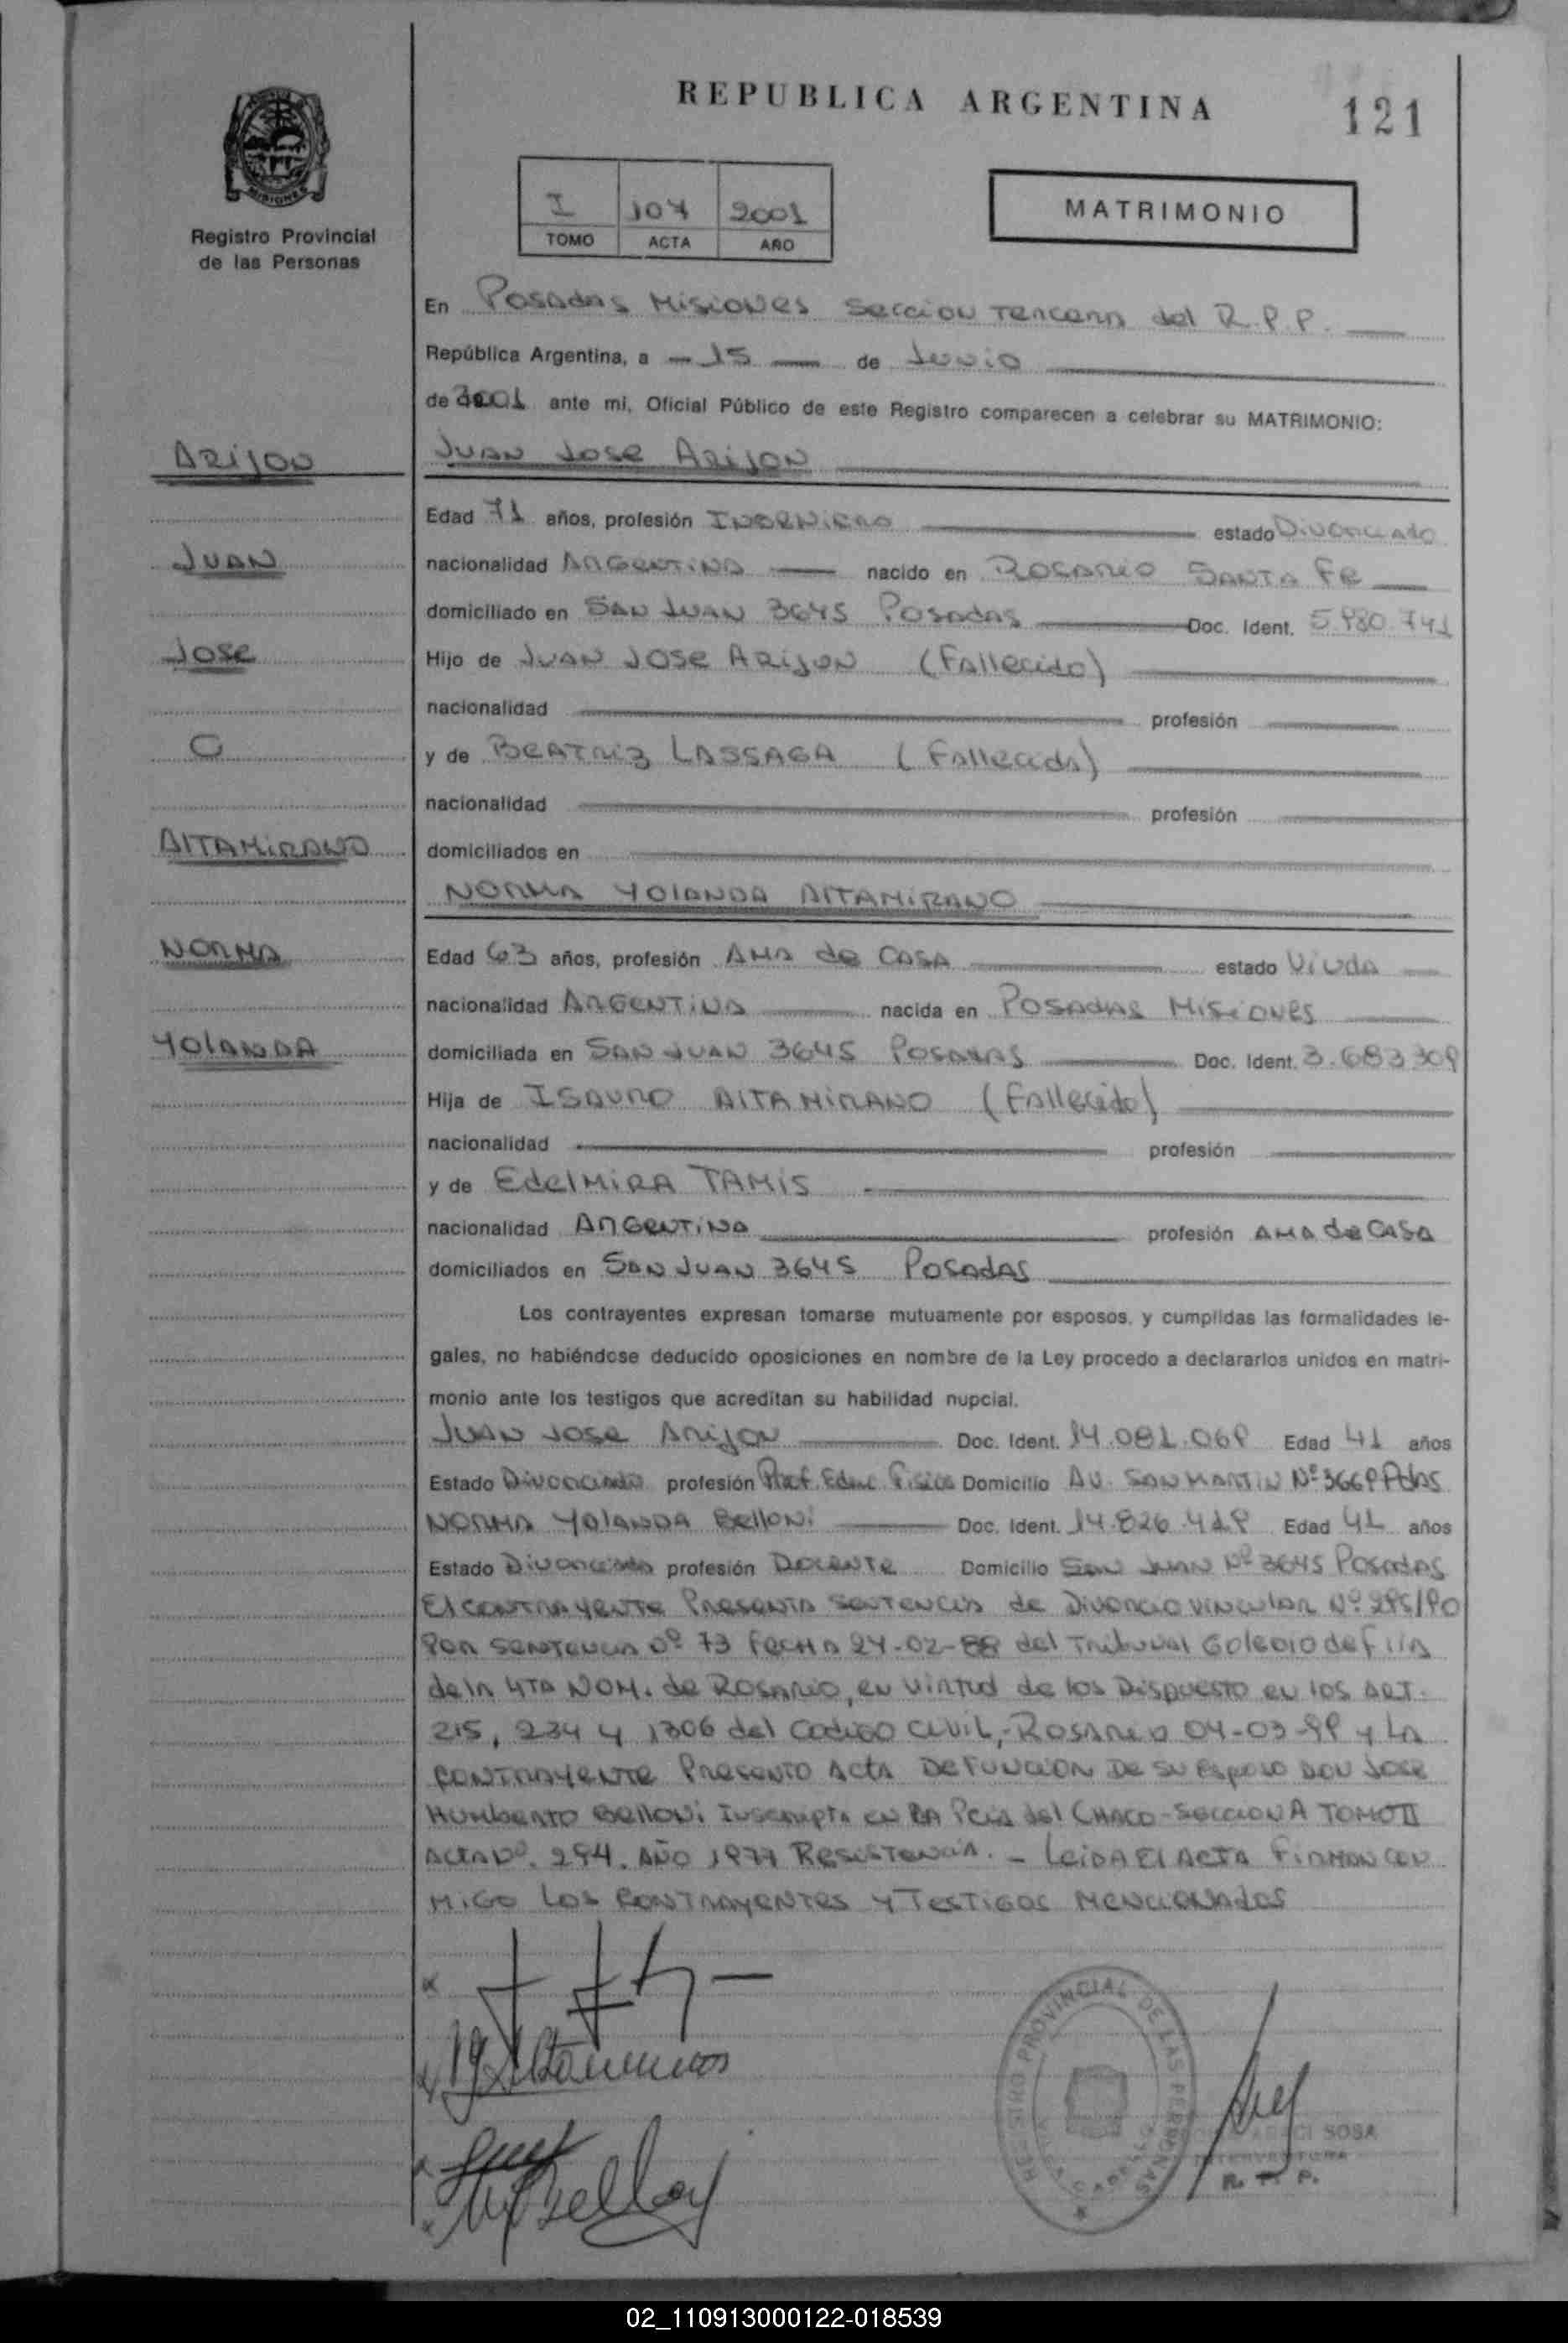 REPUBLICA ARGENTINA
121
MISIONES
Registro Provincial
de las Personas
I 107 2001
TOMO ACTA AÑO
MATRIMONIO
En Posadas Misiones Seccion Tercera del R.P.P.
República Argentina, a 15 de Junio
de 2001 ante mi, Oficial Público de este Registro comparecen a celebrar su MATRIMONIO:
Arijon
Juan Jose Arijon
Edad 71 años, profesión Ingeniero estado Divorciado
Juan
nacionalidad Argentina nacido en Rosario Santa Fe
domiciliado en San Juan 3645 Posadas Doc. Ident. 5.980.741
Jose
Hijo de Juan Jose Arijon (Fallecido)
nacionalidad profesión
C
y de Beatriz Lassaga (Fallecida)
nacionalidad profesión
Altamirano
domiciliados en
Norma Yolanda Altamirano
Norma
Edad 63 años, profesión Ama de Casa estado Viuda
nacionalidad Argentina nacida en Posadas Misiones
Yolanda
domiciliada en San Juan 3645 Posadas Doc. Ident. 3.683.309
Hija de Isauro Altamirano (Fallecido)
nacionalidad profesión
y de Edelmira Tamis
nacionalidad Argentina profesión Ama de Casa
domiciliados en San Juan 3645 Posadas
Los contrayentes expresan tomarse mutuamente por esposos, y cumplidas las formalidades le-
gales, no habiéndose deducido oposiciones en nombre de la Ley procedo a declararlos unidos en matri-
monio ante los testigos que acreditan su habilidad nupcial.
Juan Jose Arijon Doc. Ident. 14.081.069 Edad 41 años
Estado Divorciado profesión Prof. Educ. Fisica Domicilio Av. San Martin Nº 3669 Pdas
Norma Yolanda Belloni Doc. Ident. 14.826.419 Edad 41 años
Estado Divorciada profesión Docente Domicilio San Juan Nº 3645 Posadas
El contrayente Presenta Sentencia de Divorcio vincular Nº 295/90
Por sentencia Nº 73 fecha 24-02-88 del Tribunal Colegio de Flia
de la 4ta Nom. de Rosario, en virtud de los Dispuesto en los Art.
215, 234 y 1306 del Codigo Civil,-Rosario 04-03-99 y La
contrayente Presento Acta Defuncion De su Esposo Don Jose
Humberto Belloni Inscripta en La Pcia del Chaco-Seccion A Tomo II
Acta Nº. 294. Año 1977 Resistencia. - Leida El Acta Firman con
migo Los Contrayentes y Testigos Mencionados
REGISTRO PROVINCIAL DE LAS PERSONAS
SOSA
R. P. P.
02_110913000122-018539